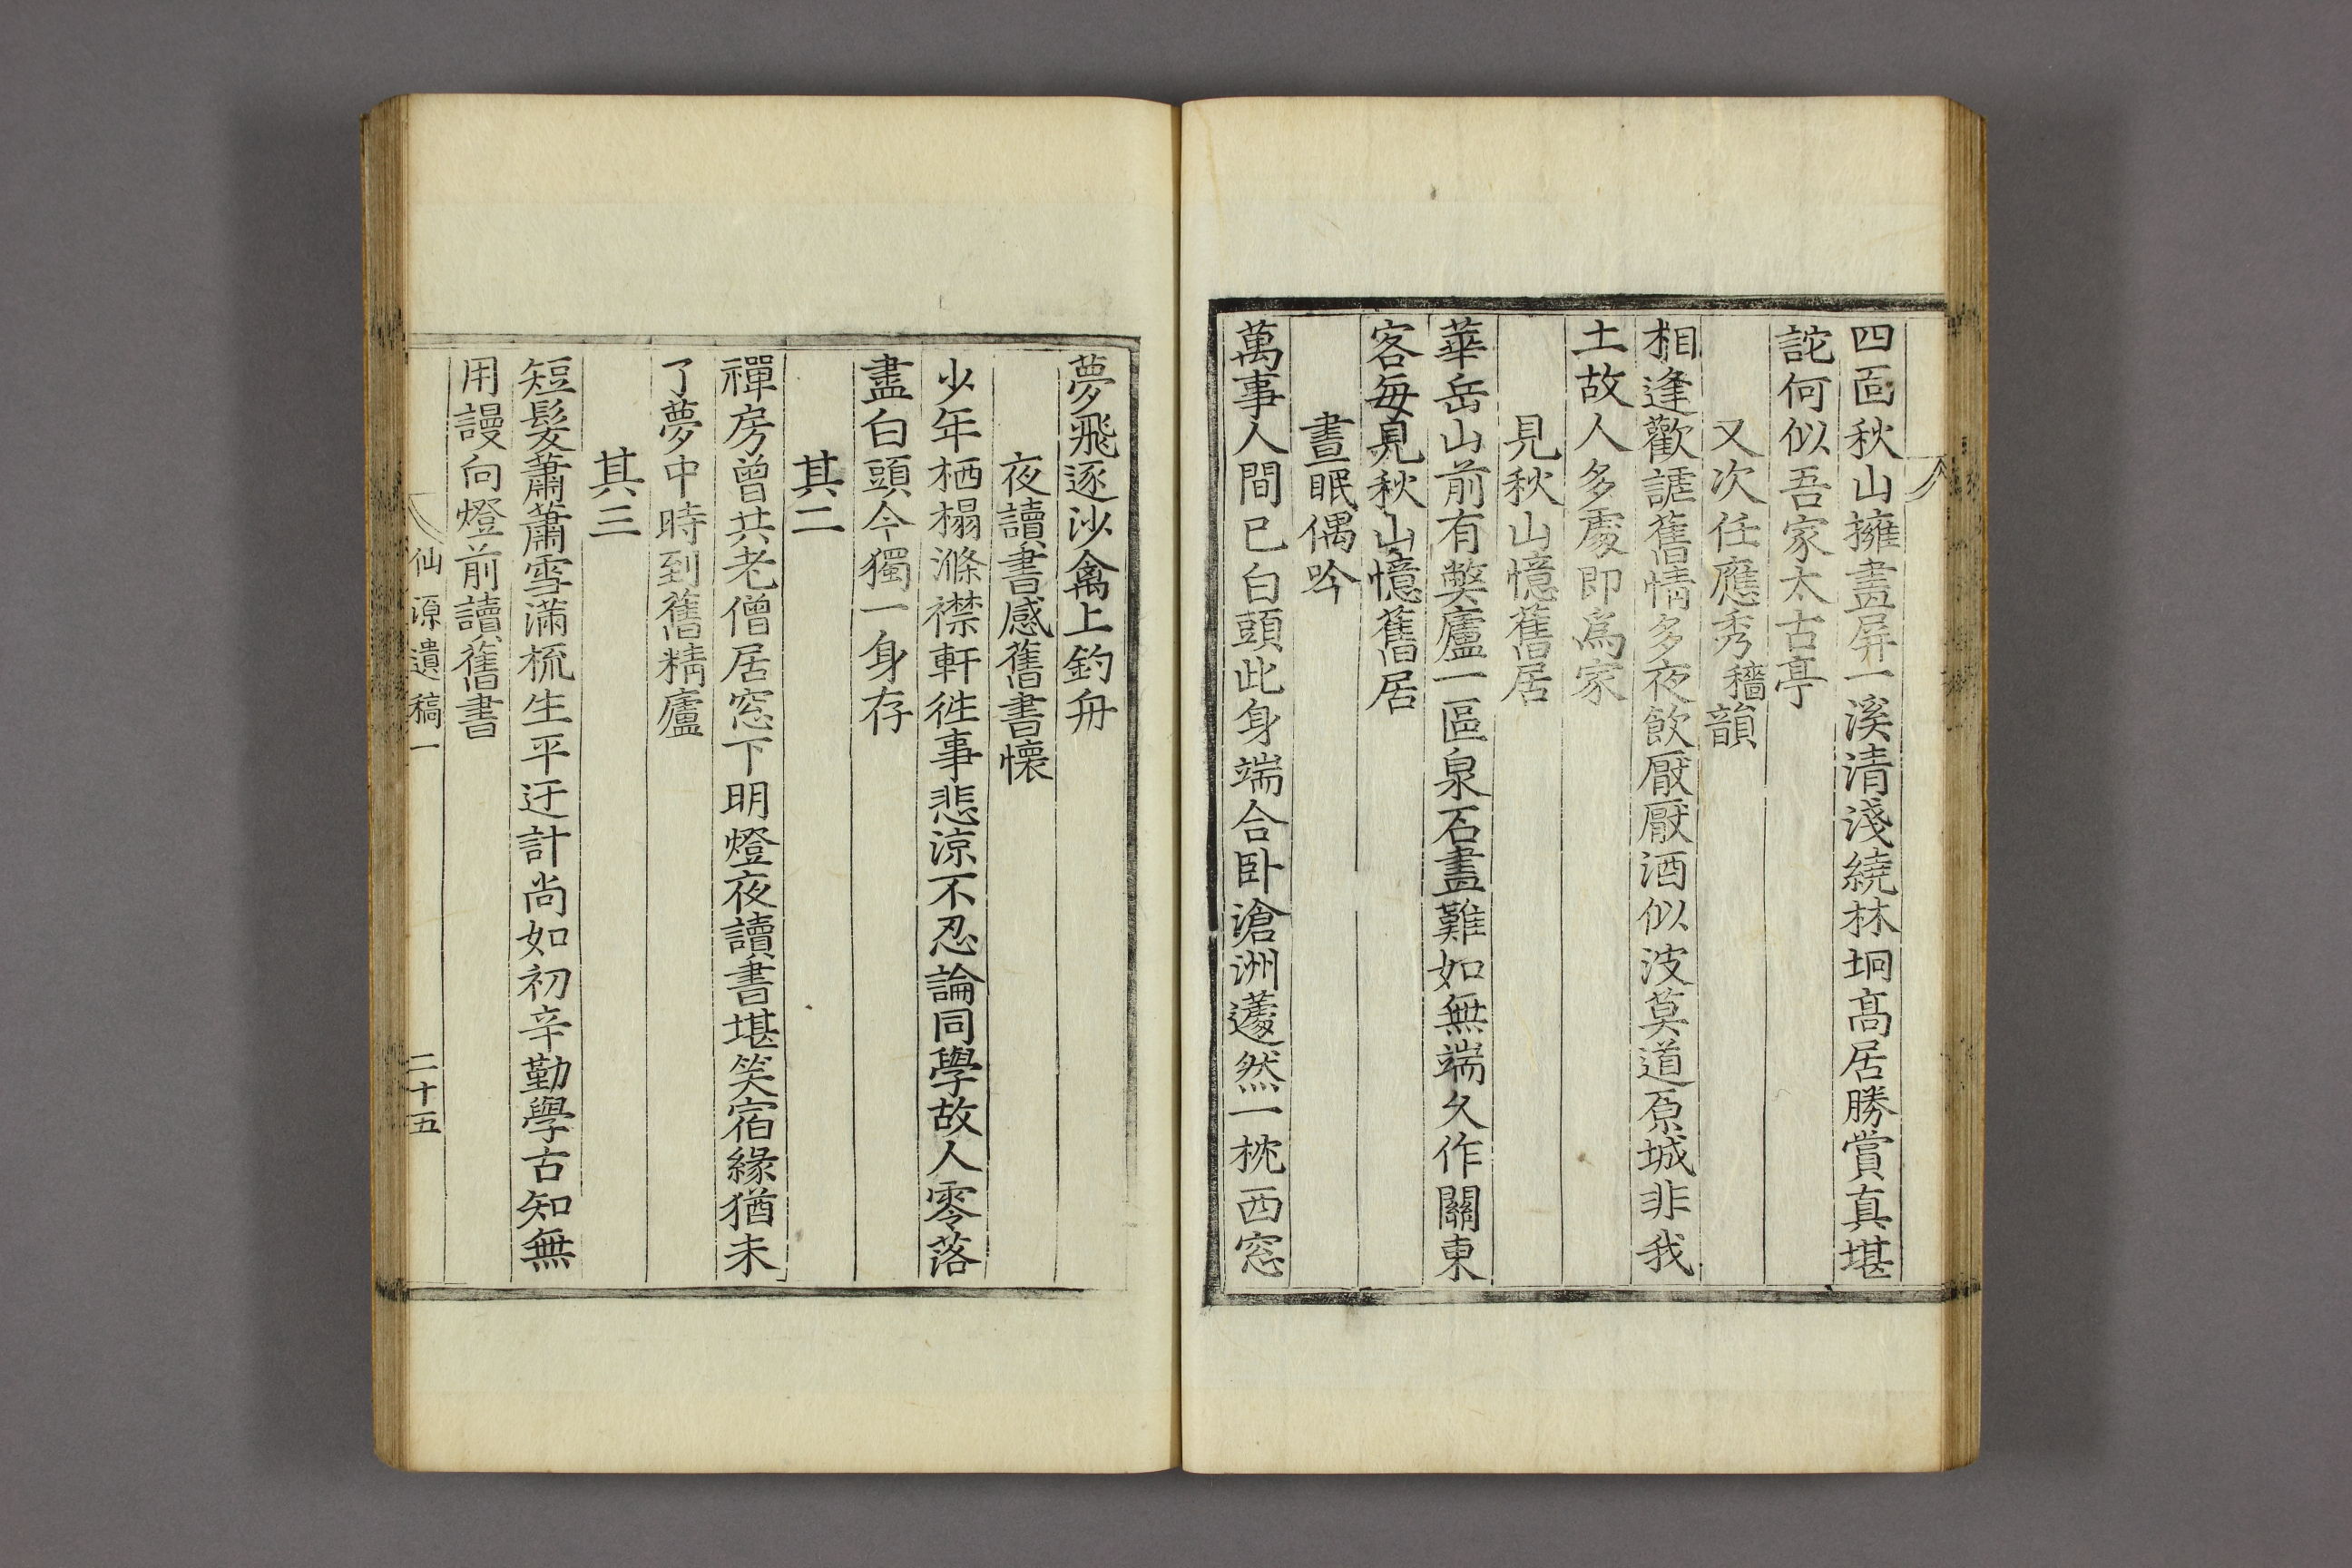 四面秋山擁畫屏一溪清淺繞林坰高居勝賞真堪
詑何似吾家太古亭
又次任應秀穡韻
相逢歡謔舊情多夜飲厭厭酒似波莫道原城非我
土故人多處即爲家
見秋山憶舊居
華岳山前有獘廬一區泉石畫難如無端久作關東
客每見秋山憶舊居
晝眠偶吟
萬事人間已白頭此身端合卧滄洲蘧然一枕西窓
夢飛逐沙禽上釣舟
夜讀書感舊書懷
少年栖榻滌襟軒徃事悲涼不忍論同學故人零落
盡白頭今獨一身存
其二
禪房曾共老僧居窓下明燈夜讀書堪笑宿緣猶未
了夢中時到舊精廬
其三
短髮蕭蕭雪滿梳生平迂計尚如初辛勤學古知無
用謾向燈前讀舊書
仙源遺稿一
二十五